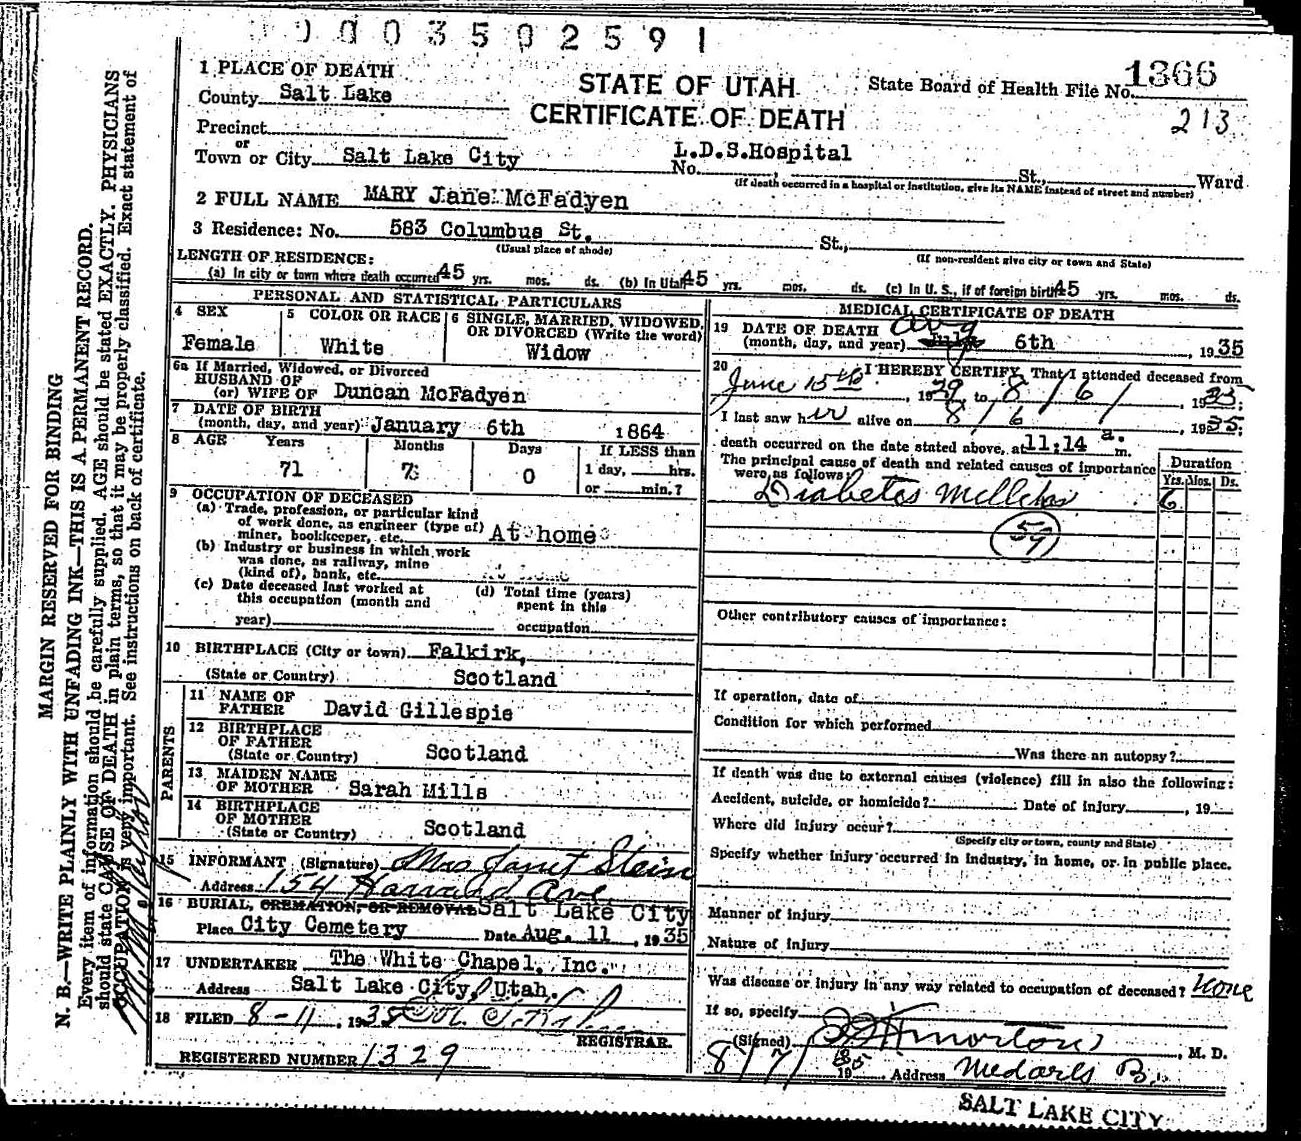 0003502591
1 PLACE OF DEATH
County Salt Lake
STATE OF UTAH
CERTIFICATE OF DEATH
State Board of Health File No. 1366
213
Precinct
or
Town or City Salt Lake City
L.D.S. Hospital
No. , St., Ward
(If death occurred in a hospital or institution, give its NAME instead of street and number)
2 FULL NAME MARY Jane McFadyen
3 Residence: No. 583 Columbus St. St.,
(Usual place of abode) (If non-resident give city or town and State)
LENGTH OF RESIDENCE:
(a) In city or town where death occurred 45 yrs. mos. ds. (b) In Utah 45 yrs. mos. ds. (c) In U. S., if of foreign birth 45 yrs. mos. ds.
PERSONAL AND STATISTICAL PARTICULARS
4 SEX
Female
5 COLOR OR RACE
White
6 SINGLE, MARRIED, WIDOWED,
OR DIVORCED (Write the word)
Widow
6a If Married, Widowed, or Divorced
HUSBAND OF
(or) WIFE OF Duncan McFadyen
7 DATE OF BIRTH
(month, day, and year) January 6th 1864
8 AGE Years Months Days If LESS than
71 7 0 1 day, hrs.
or min.?
9 OCCUPATION OF DECEASED
(a) Trade, profession, or particular kind
of work done, as engineer (type of)
miner, bookkeeper, etc. At home
(b) Industry or business in which work
was done, as railway, mine
(kind of), bank, etc.
(c) Date deceased last worked at
this occupation (month and
year)
(d) Total time (years)
spent in this
occupation
10 BIRTHPLACE (City or town) Falkirk,
(State or Country) Scotland
PARENTS
11 NAME OF
FATHER David Gillespie
12 BIRTHPLACE
OF FATHER
(State or Country) Scotland
13 MAIDEN NAME
OF MOTHER Sarah Mills
14 BIRTHPLACE
OF MOTHER
(State or Country) Scotland
15 INFORMANT (Signature) Mrs Janet Stein
Address 154 Harvard Ave.
16 BURIAL, CREMATION, OR REMOVAL Salt Lake City
Place City Cemetery Date Aug. 11, 1935
17 UNDERTAKER The White Chapel, Inc.
Address Salt Lake City, Utah.
18 FILED 8-11, 1935
REGISTRAR.
REGISTERED NUMBER 1329
MEDICAL CERTIFICATE OF DEATH
19 DATE OF DEATH Aug
(month, day, and year) July 6th, 1935
20 I HEREBY CERTIFY, That I attended deceased from
June 15th, 1929, to 8/6/, 1935;
I last saw her alive on 8/6, 1935;
death occurred on the date stated above, at 11:14 a. m.
The principal cause of death and related causes of importance
were as follows:
Duration
Yrs. Mos. Ds.
Diabetes Mellitus 6
59
Other contributory causes of importance:
If operation, date of
Condition for which performed
Was there an autopsy?
If death was due to external causes (violence) fill in also the following:
Accident, suicide, or homicide? Date of injury, 19
Where did injury occur?
(Specify city or town, county and State)
Specify whether injury occurred in industry, in home, or in public place.
Manner of injury
Nature of injury
Was disease or injury in any way related to occupation of deceased? None
If so, specify
(Signed) Morton, M. D.
8/7/ 1935 Address Medarts B.
SALT LAKE CITY
MARGIN RESERVED FOR BINDING
N. B.—WRITE PLAINLY WITH UNFADING INK—THIS IS A PERMANENT RECORD.
Every item of information should be carefully supplied. AGE should be stated EXACTLY. PHYSICIANS
should state CAUSE OF DEATH in plain terms, so that it may be properly classified. Exact statement of
OCCUPATION is very important. See instructions on back of certificate.